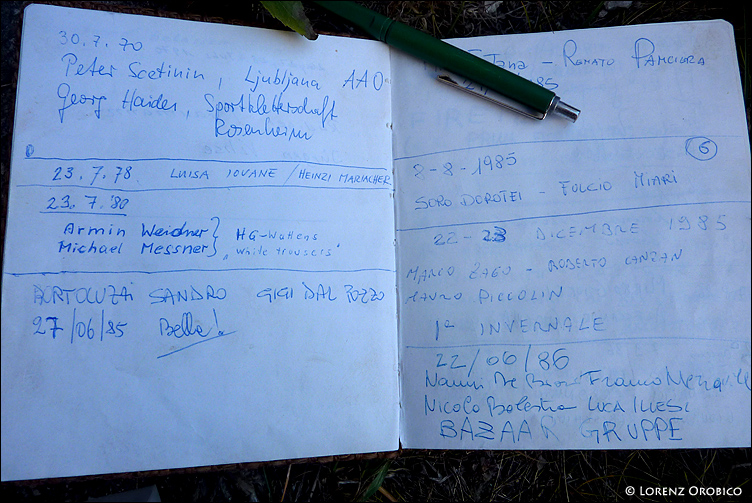 30.7.70
Peter Scetinin, Ljubljana AAO
Georg Haider, Sportkletterschaft
Rosenheim
23.7.78 LUISA IOVANE / HEINZI MARIACHER
23.7.80
Armin Weidner } HG-Wattens
Michael Messner } "White trousers"
BORTOLUZZI SANDRO GIGI DAL POZZO
27/06/85 Bella!
- ROMATO PANCIERA
85
2-8-1985 6
SORO DOROTEI - FULCIO MIARI
22-23 DICEMBRE 1985
MARCO ZAGO - ROBERTO CANZAN
MAURO PICCOLIN
1a INVERNALE
22/06/86
Nanni De Franco
Nicolò Balestra LUCA ILLESI
BAZAAR GRUPPE
© LORENZ OROBICO